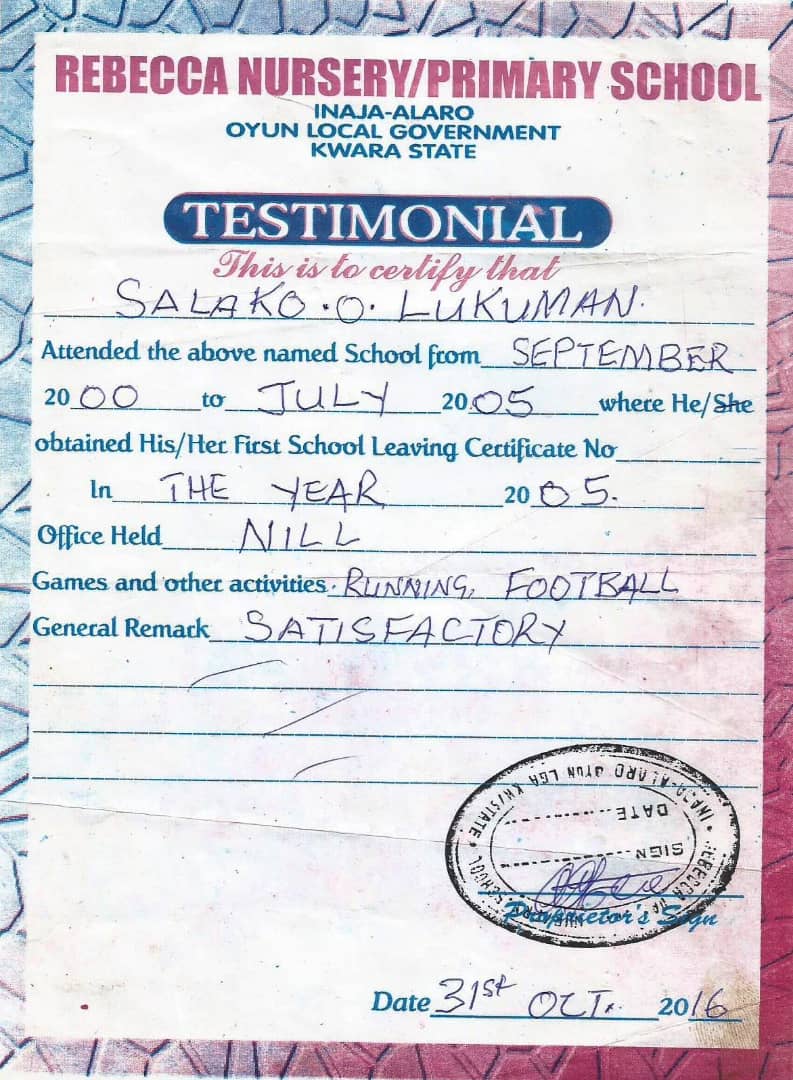 REBECCA NURSERY/PRIMARY SCHOOL
INAJA-ALARO
OYUN LOCAL GOVERNMENT
KWARA STATE
TESTIMONIAL
This is to certify that
SALAKO .O. LUKUMAN.
Attended the above named School from SEPTEMBER
20 00 to JULY 20 05 where He/She
obtained His/Her First School Leaving Certificate No
In THE YEAR 20 05.
Office Held NILL
Games and other activities. RUNNING, FOOTBALL
General Remark SATISFACTORY
INAJA-ALARO OYUN LGA KW/STATE
DATE
SIGN
Proprietor's Sign
Date 31st OCT. 2016